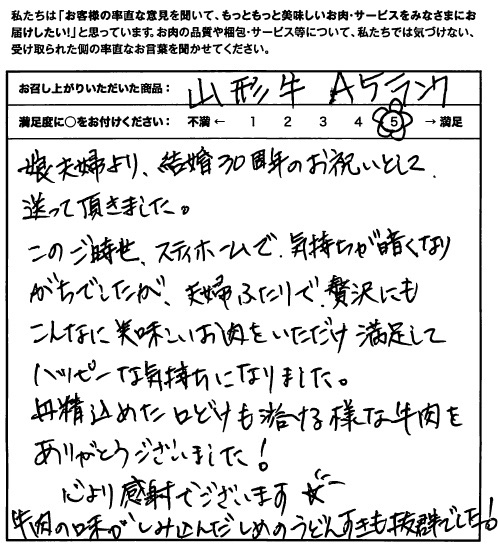 私たちは「お客様の率直な意見を聞いて、もっともっと美味しいお肉・サービスをみなさまにお
届けしたい!」と思っています。お肉の品質や梱包・サービス等について、私たちでは気づけない、
受け取られた側の率直なお言葉を聞かせてください。
お召し上がりいただいた商品: 山形牛 A5ランク
満足度に○をお付けください: 不満 ← 1 2 3 4 5 → 満足
娘夫婦より、結婚30周年のお祝いとして
送って頂きました。
このご時世、スティホームで、気持ちが暗くなり
がちでしたが、夫婦ふたりで、贅沢にも
こんなに美味しいお肉をいただけ満足して
ハッピーな気持ちになりました。
丹精込めた口どけも溶ける様な牛肉を
ありがとうございました!
心より感射でございます
牛肉の味がしみ込んだしめのうどんすきも抜群でした!